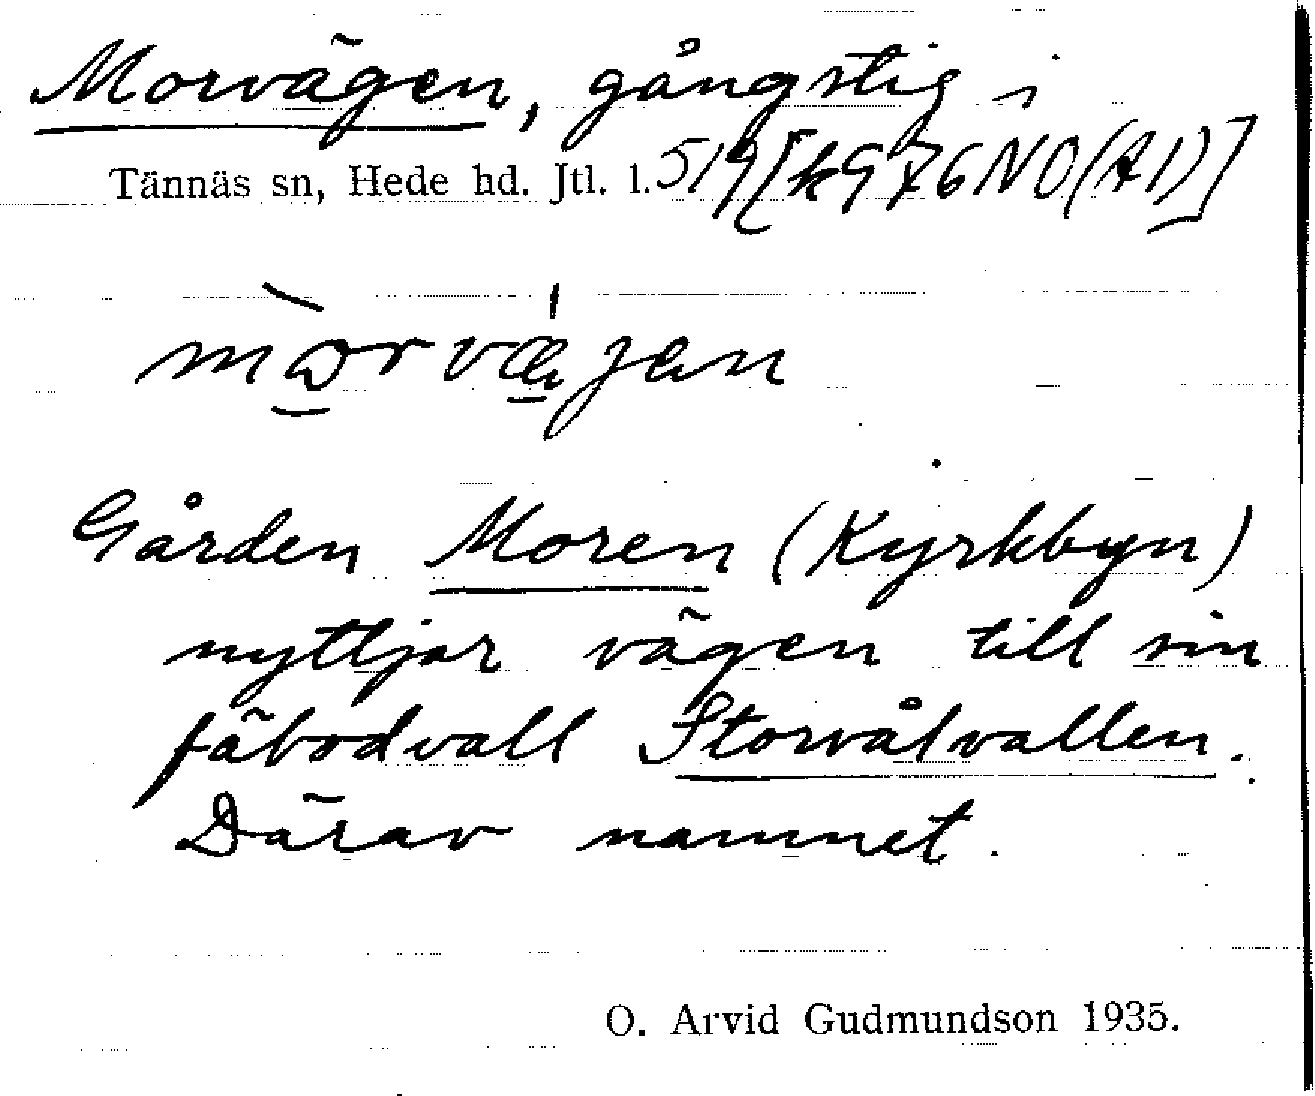 Morvägen, gångstig i
Tännäs sn, Hede hd. Jtl. l. 519 [k976NO(A1)]
mòrvǽjen
Gården Moren (Kyrkbyn)
nyttjar vägen till sin
fäbodvall Storvålvallen.
Därav namnet.
O. Arvid Gudmundson 1935.